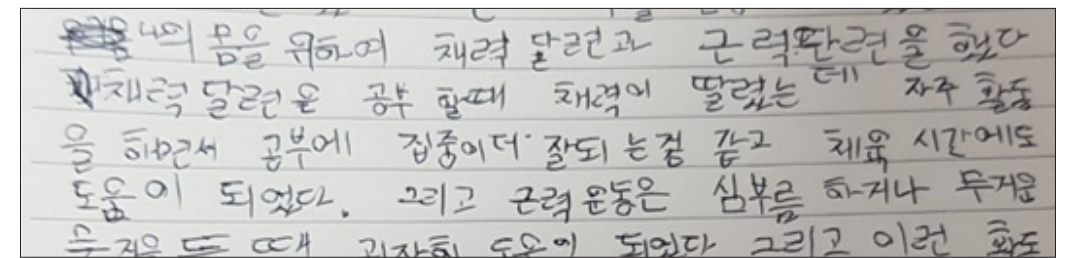 나의 몸을 위하여 채력 달련과 근력 단련을 했다
채력 달련은 공부 할때 채력이 딸렸는데 자주 활동
을 하면서 공부에 집중이 더 잘되 는걸 같고 체육 시간에도
도움이 되었다. 그리고 근력 운동은 심부름 하거나 무거운
때 도움이 되었다 그리고 이런